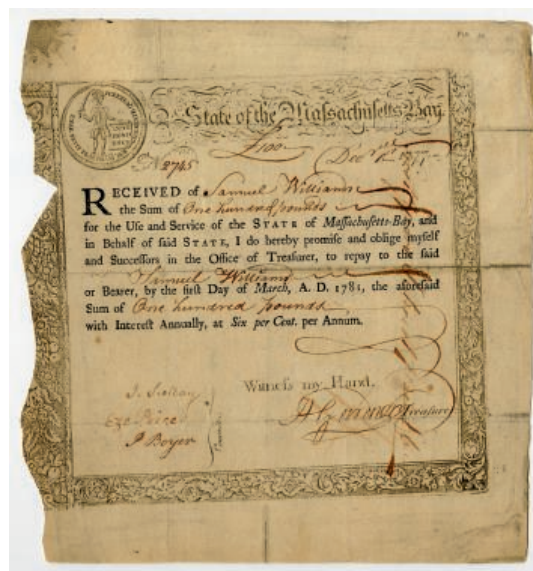 State of the Massachusetts Bay
£100 Decr 1st 1777
No 2745
RECEIVED of Samuel Williams
the Sum of One hundred pounds
for the Use and Service of the STATE of Massachusetts-Bay, and
in Behalf of said STATE, I do hereby promise and oblige myself
and Successors in the Office of Treasurer, to repay to the said
Samuel Williams
or Bearer, by the first Day of March, A. D. 1781, the aforesaid
Sum of One hundred pounds
with Interest Annually, at Six per Cent. per Annum.
Witness my Hand,
Eze Price
P Boyer
H Gardner Treasurer